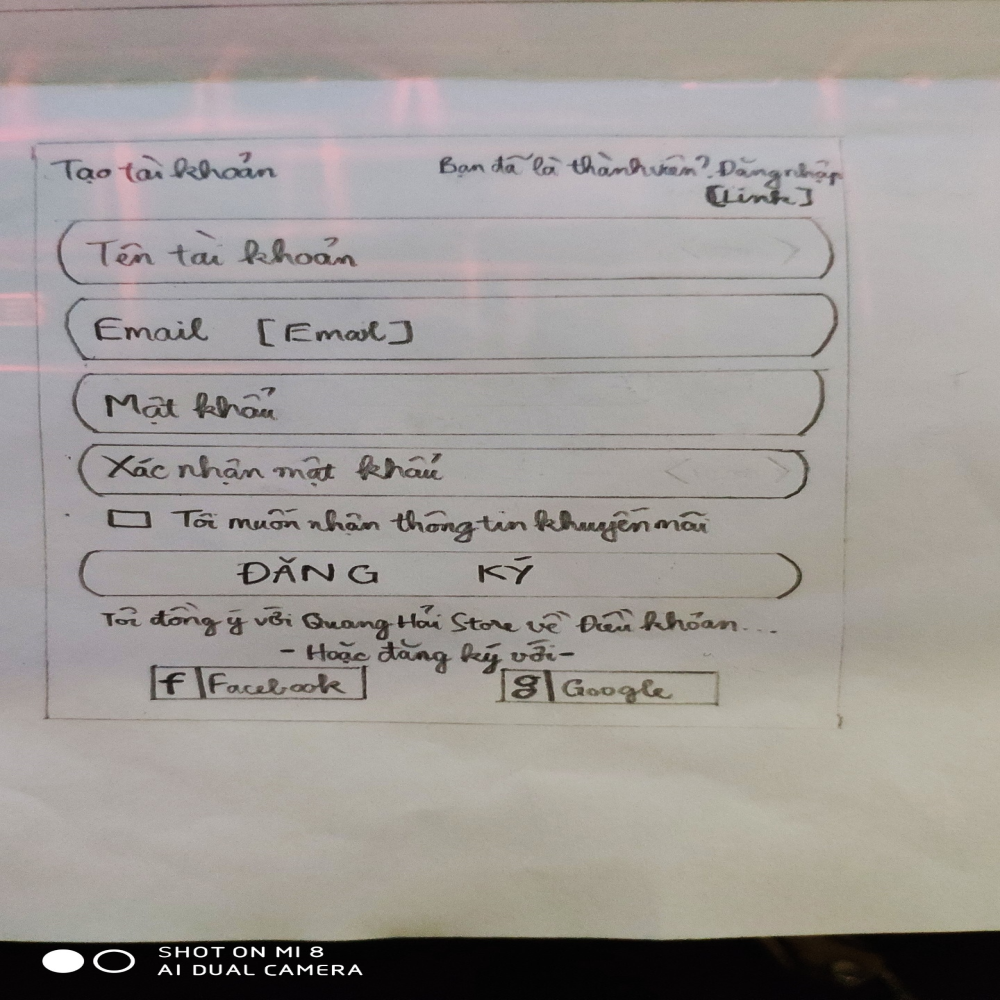 Tạo tài khoản
Bạn đã là thành viên? Đăng nhập
[Link]
Tên tài khoản
Email [Email]
Mật khẩu
Xác nhận mật khẩu
Tôi muốn nhận thông tin khuyến mãi
ĐĂNG KÝ
Tôi đồng ý với Quang Hải Store về Điều khoản...
- Hoặc đăng ký với -
f Facebook
g Google
SHOT ON MI 8
AI DUAL CAMERA